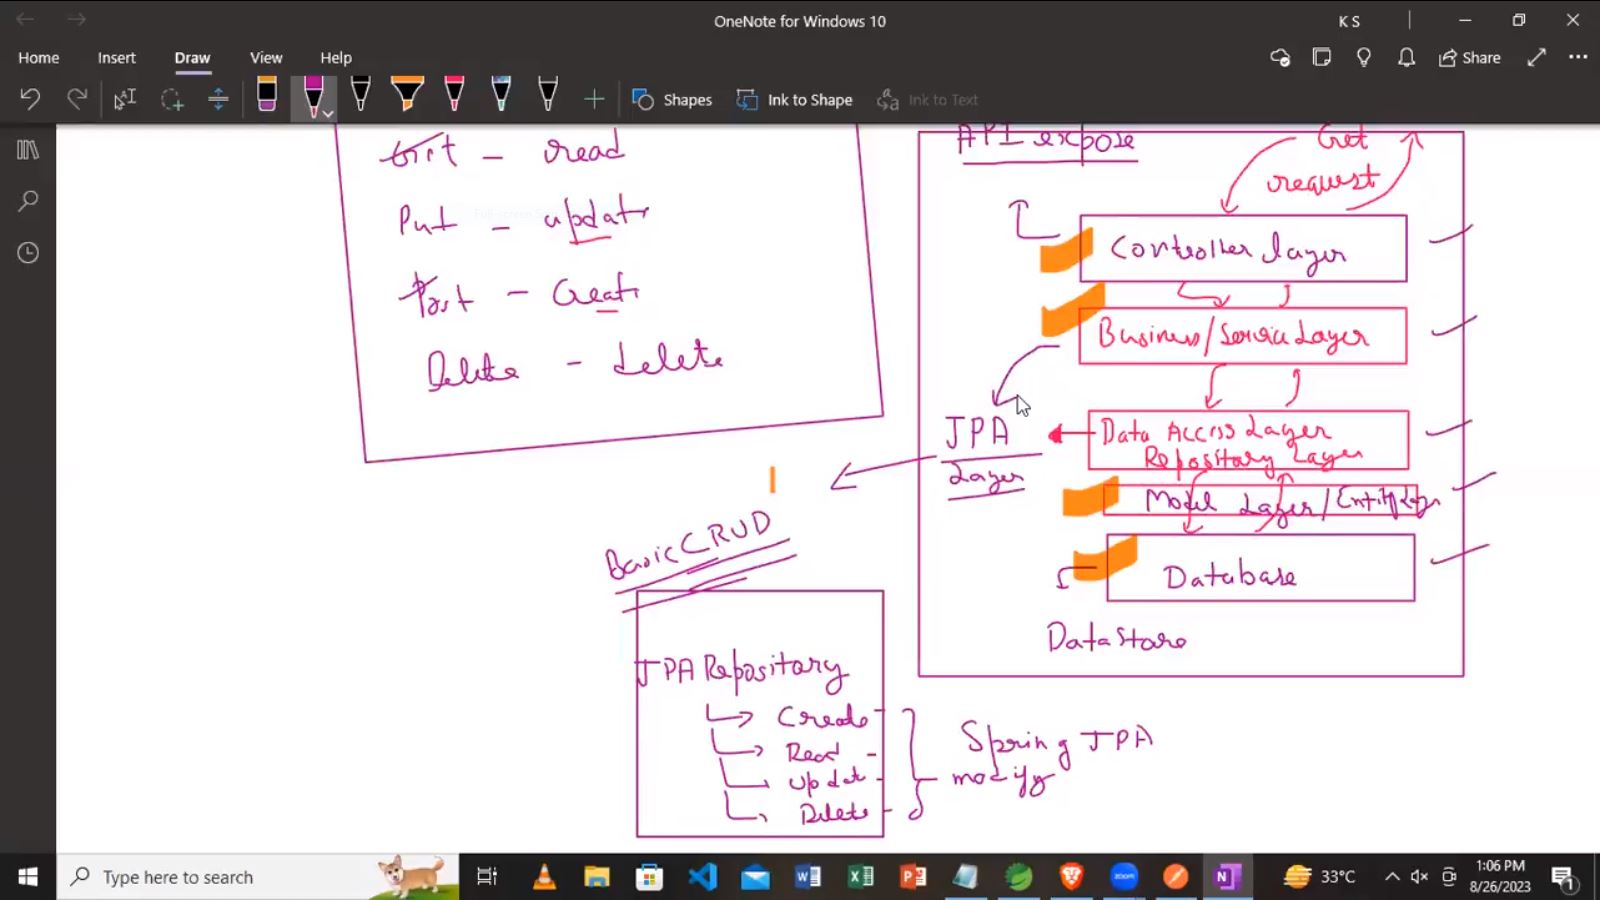 OneNote for Windows 10
K S
Home Insert Draw View Help
Share
Shapes
Ink to Shape
Ink to Text
Get - read
Put - update
Post - Create
Delete - delete
API expose
Get
request
Controller layer
Business/Service Layer
Data Access Layer
Repository Layer
JPA
Layer
Model Layer/Entity Layer
Database
DataStore
Basic CRUD
JPA Repository
Create
Read
Update
Delete
Spring JPA
modify
Type here to search
33°C
1:06 PM
8/26/2023
1